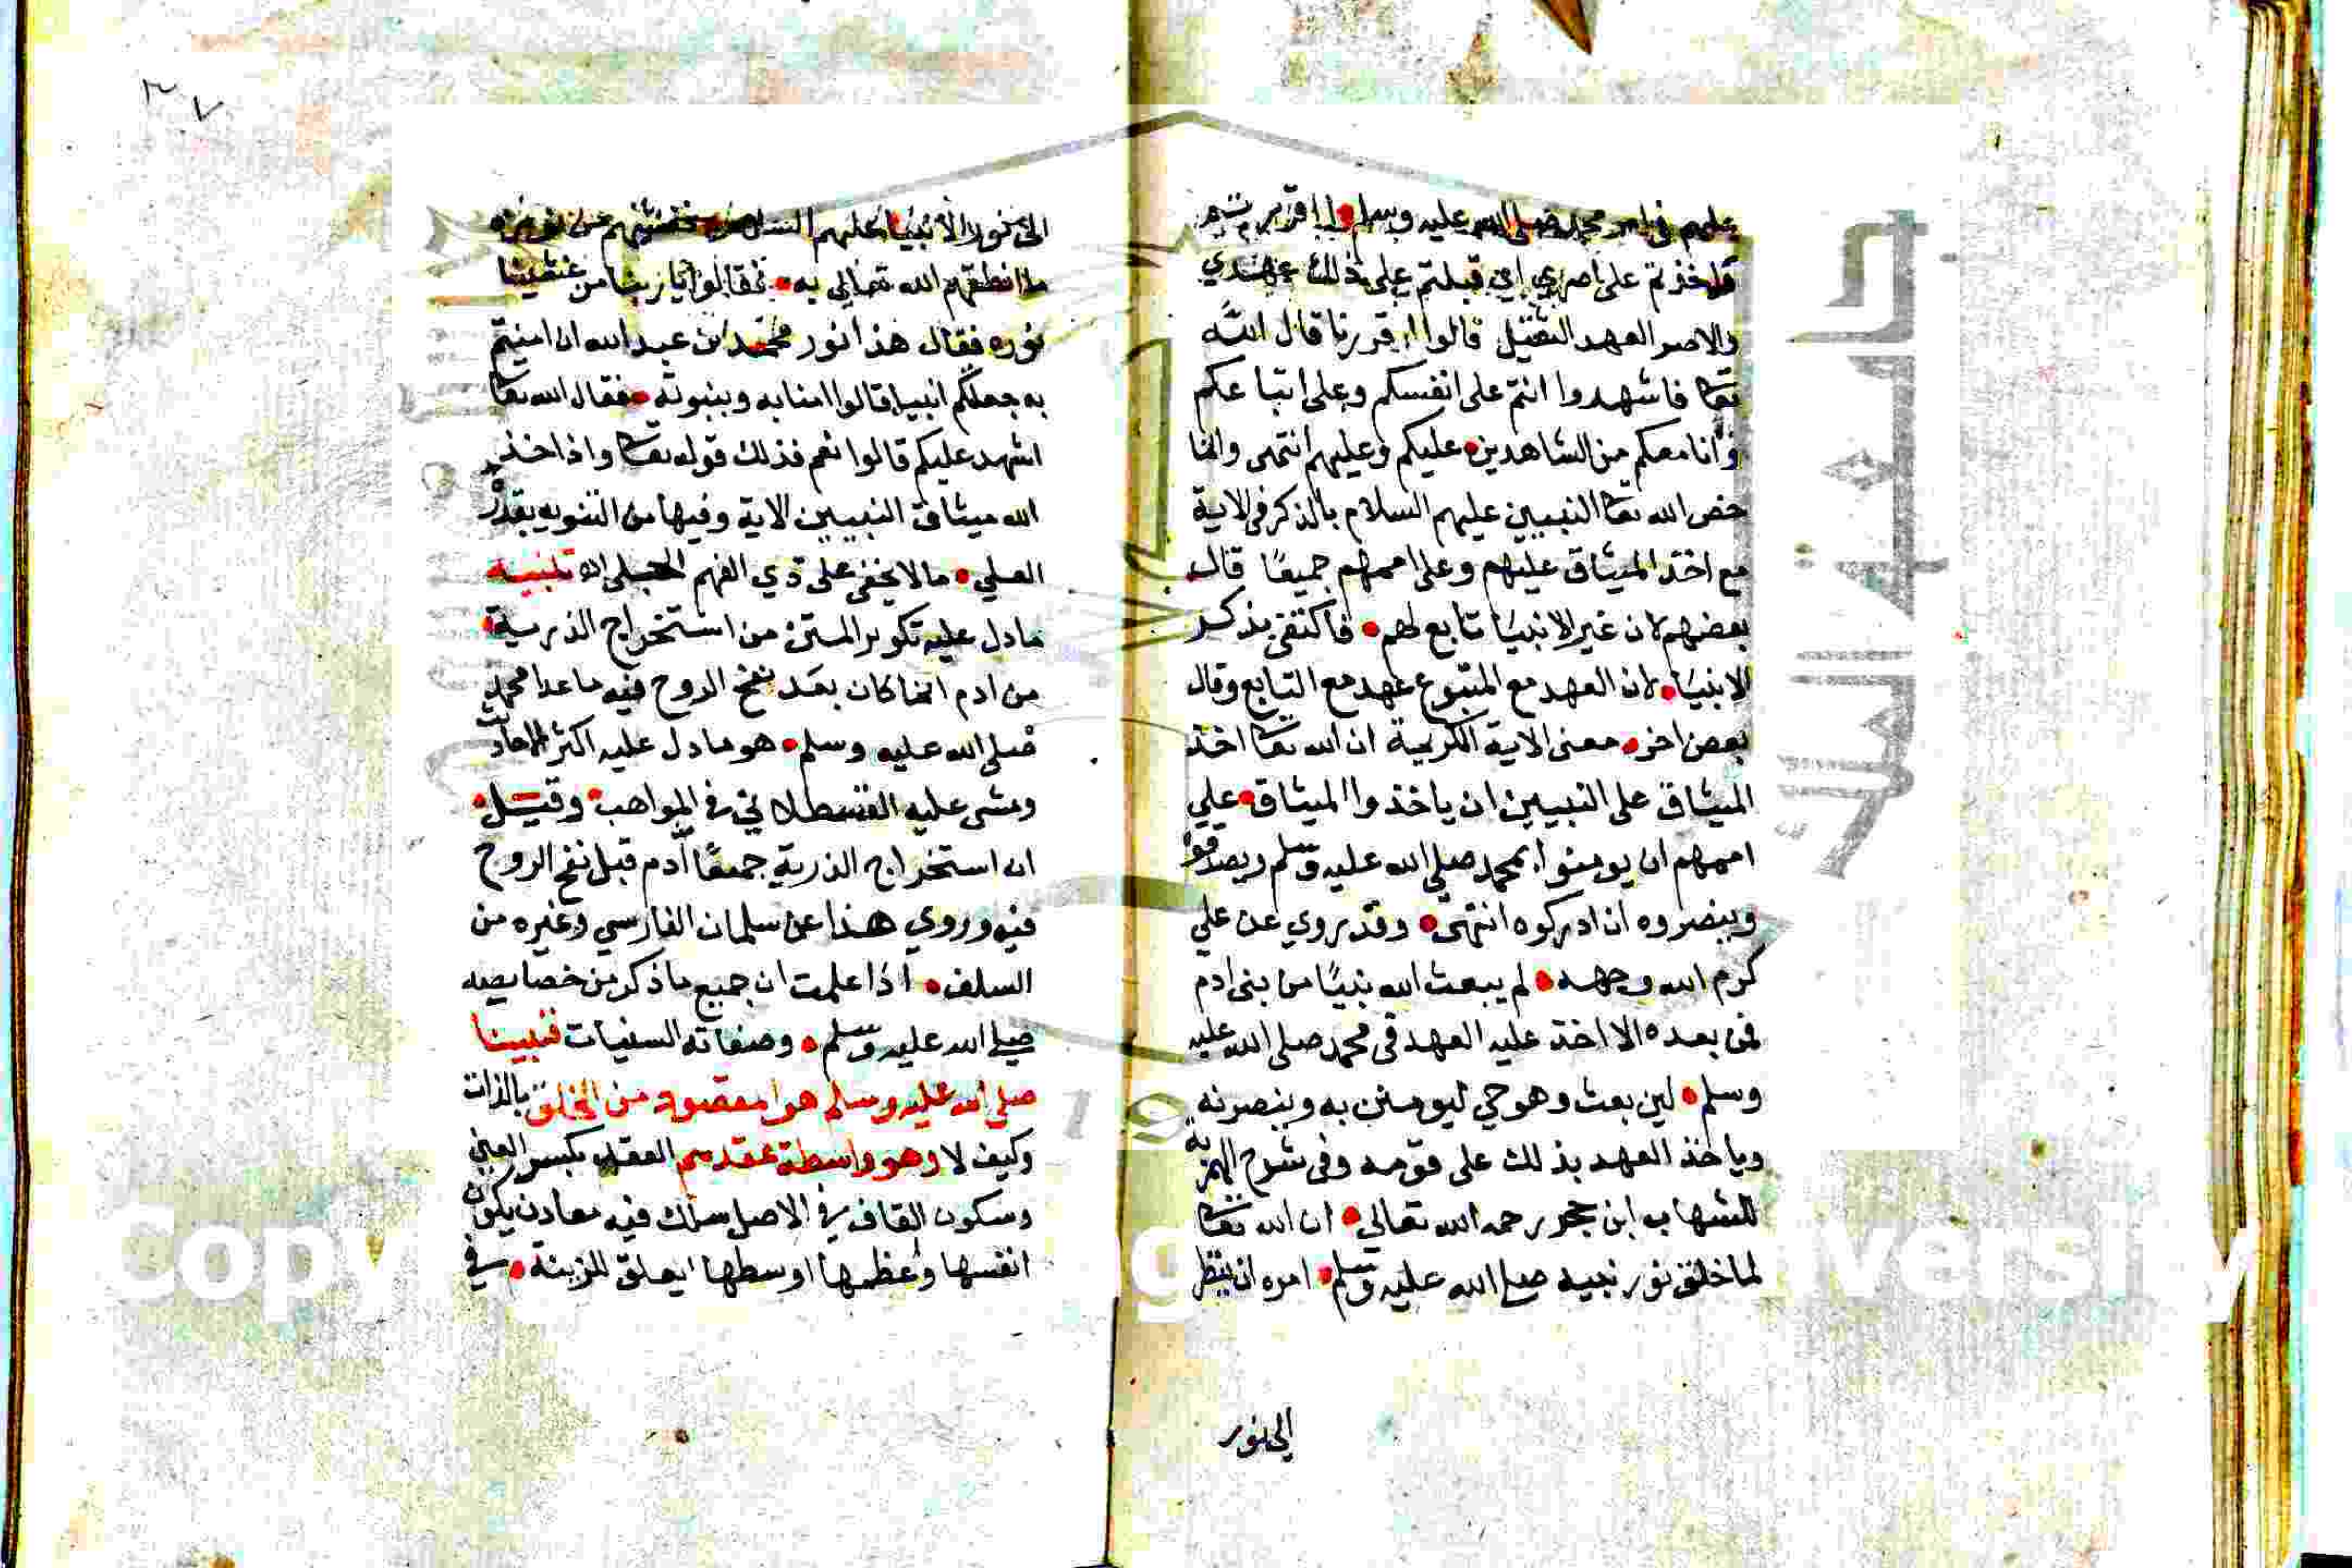 عليهم في امر محمد صلى الله عليه وسلم أأقررتم
واخذتم على اصري اي قبلتم على ذلك عهدي
والاصر العهد الثقيل قالوا اقررنا قال الله
تعا فاشهدوا انتم على انفسكم وعلى اتباعكم
وانا معكم من الشاهدين عليكم وعليهم انتهى وانما
خص الله تعا النبيين عليهم السلام بالذكر في الاية
مع اخذ الميثاق عليهم وعلى اممهم جميعًا قال
بعضهم لان غير الانبيا تابع لهم فاكتفى بذكر
الانبيا لان العهد مع المتبوع عهد مع التابع وقال
بعض اخر معنى الاية الكريمة ان الله تعا اخذ
الميثاق على النبيين ان ياخذوا الميثاق علي
اممهم ان يومنوا بمحمد صلى الله عليه وسلم ويصدقوا
وينصروه ان ادركوه انتهى وقد روي عن علي
كرم الله وجهه لم يبعث الله نبيًا من بني ادم
فمن بعده الا اخذ عليه العهد في محمد صلى الله عليه
وسلم لين بعث وهو حي ليومنن به وينصرنه
وياخذ العهد بذلك على قومه وفي شرح الهمزية
للشهاب ابن حجر رحمه الله تعالى ان الله تعا
لما خلق نور نبيه صلى الله عليه وسلم امره ان ينظر
الى نور
٣٧
الى نور الانبيا عليهم السلام فغشيهم من نوره
ما انطقهم الله تعالى به فقالوا يا ربنا من غشينا
نوره فقال هذا نور محمد بن عبد الله ان امنتم
به جعلكم انبيا قالوا امنا به وبنبوته فقال الله تعا
اشهد عليكم قالوا نعم فذلك قوله تعا واذ اخذ
الله ميثاق النبيين الاية وفيها من التنويه بقدره
العلي ما لا يخفى على ذي الفهم تنبيه
ما دل عليه تكوير المتن من استخراج الذرية
من ادم انما كان بعد نفخ الروح فيه ما عدا محمد
صلى الله عليه وسلم هو ما دل عليه اكثر الاحاديث
ومشى عليه القسطلاني في المواهب وقيل
ان استخراج الذرية جمعًا آدم قبل نفخ الروح
فيه وروي هذا عن سلمان الفارسي وغيره من
السلف اذا علمت ان جميع ما ذكر من خصايصه
صلى الله عليه وسلم وصفاته السنيات فنبينا
صلى الله عليه وسلم هو المقصود من الخلق بالذات
وكيف لا وهو واسطة عقدهم العقد بكسر العين
وسكون القاف في الاصل سلك فيه معادن يكون
انفسها وعظمها اوسطها ايعلق للزينة في